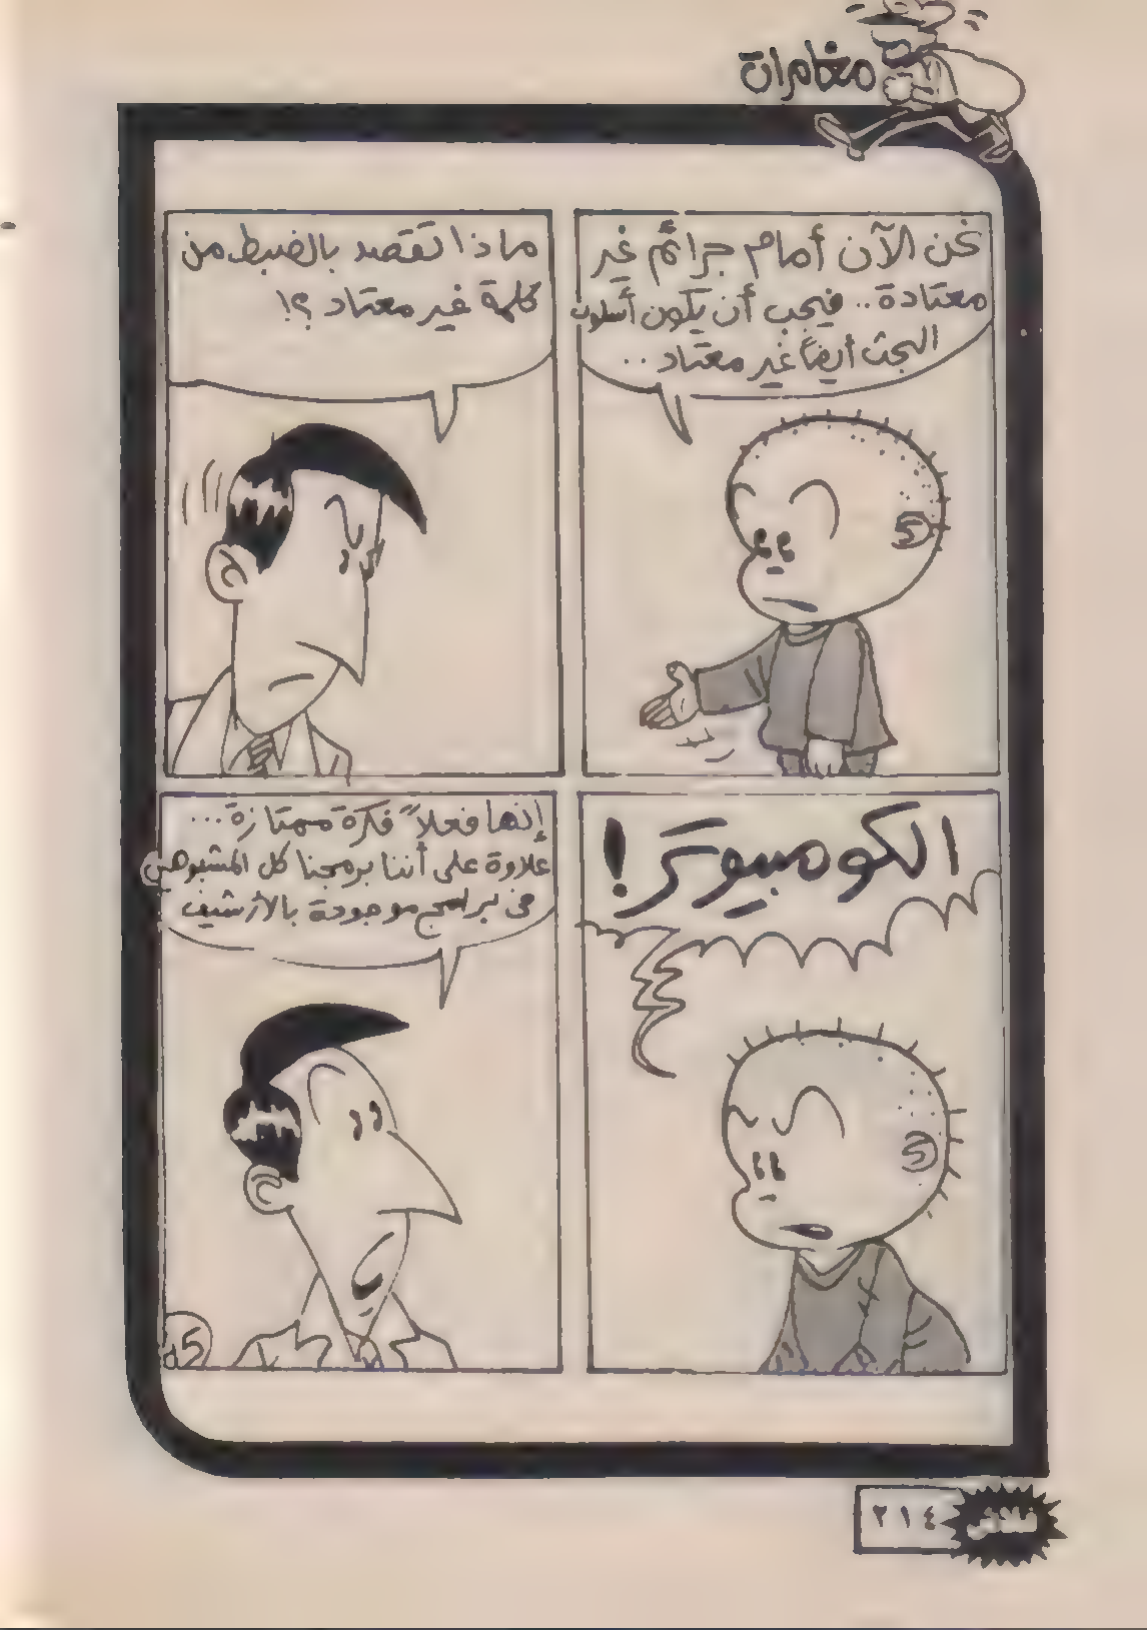 مغامرات
نحن الآن أمام جرائم غير
معتادة.. فيجب أن يكون أسلوب
البحث أيضاً غير معتاد..
ماذا تقصد بالضبط من
كلمة غير معتاد ؟!
الكومبيوتر !
إنها فعلاً فكرة ممتازة...
علاوة على أننا برمجنا كل المشبوهين
فى برامج موجودة بالأرشيف
٢١٤
فلاش